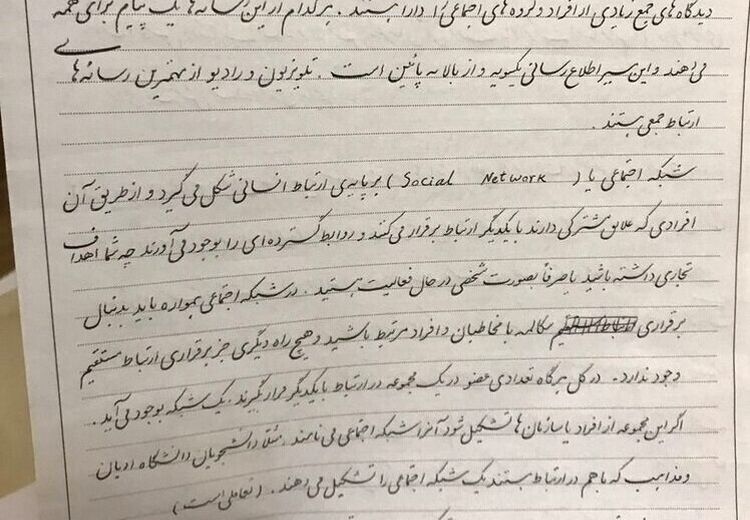 دیدگاه‌های جمع زیادی از افراد و گروه‌های اجتماعی را دارا هستند. هر کدام از این رسانه‌ها یک پیام برای همه
می‌دهند و این سیر اطلاع رسانی یکسویه و از بالا به پائین است. تلویزیون و رادیو از مهمترین رسانه‌های
ارتباط جمعی هستند.
شبکه اجتماعی یا (Social Network) بر پایه‌ی ارتباط انسانی شکل می‌گیرد و از طریق آن
افرادی که علایق مشترکی دارند با یکدیگر ارتباط برقرار می‌کنند و روابط گسترده‌ای را بوجود می‌آورند چه شما اهداف
تجاری داشته باشید یا صرفاً بصورت شخصی در حال فعالیت هستید. در شبکه اجتماعی همواره باید بدنبال
برقراری مکالمه با مخاطبان و افراد مرتبط باشید و هیچ راه دیگری جز برقراری ارتباط مستقیم
وجود ندارد. در کل هرگاه تعدادی عضو در یک مجموعه در ارتباط با یکدیگر قرار گیرند، یک شبکه بوجود می‌آید.
اگر این مجموعه از افراد یا سازمان‌ها تشکیل شود آنرا شبکه اجتماعی می‌نامند. مثلاً دانشجویان دانشگاه ادیان
و مذاهب که با هم در ارتباط هستند یک شبکه اجتماعی را تشکیل می‌دهند. (تعاملی است)